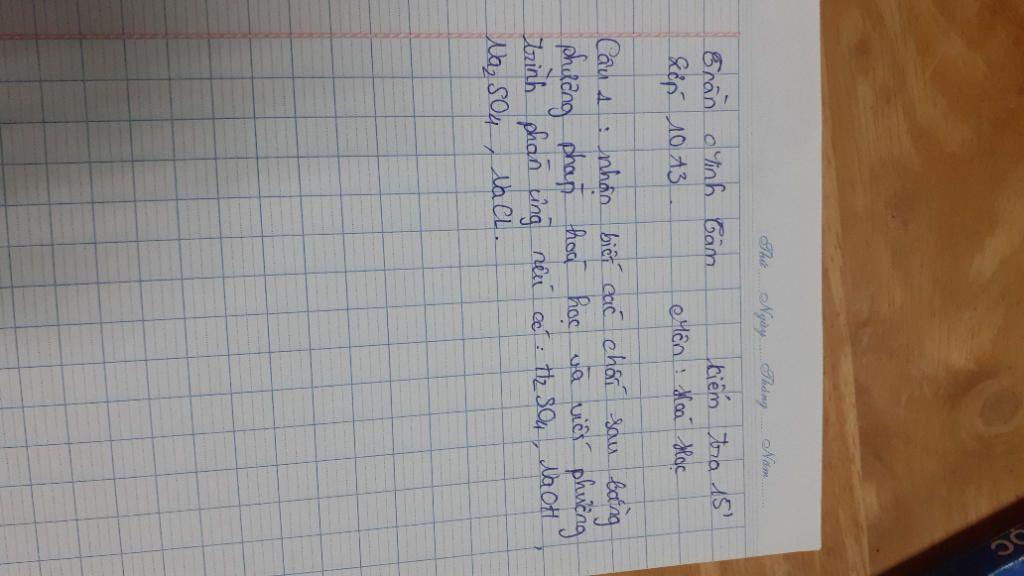 Thứ..... Ngày..... Tháng..... Năm.........
Trần Minh Tâm kiểm tra 15'
Lớp 10A3. Môn: Hoá Học
Câu 1: nhận biết các chất sau bằng
phương pháp hoá học và viết phương
trình phản ứng nếu có: H₂SO₄, NaOH,
Na₂SO₄, NaCl.
ỌC